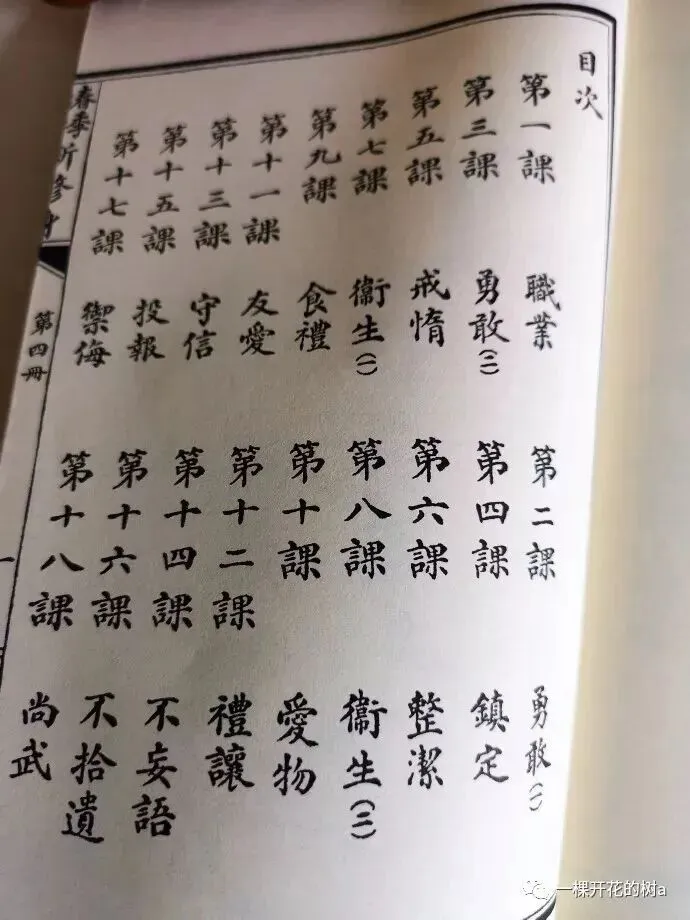 目次
第一課 職業 第二課 勇敢(一)
第三課 勇敢(二) 第四課 鎮定
第五課 戒惰 第六課 整潔
第七課 衞生(一) 第八課 衞生(二)
第九課 食禮 第十課 愛物
第十一課 友愛 第十二課 禮讓
第十三課 守信 第十四課 不妄語
第十五課 投報 第十六課 不拾遺
第十七課 禦侮 第十八課 尚武
春季新修身 第四冊
一棵开花的树a